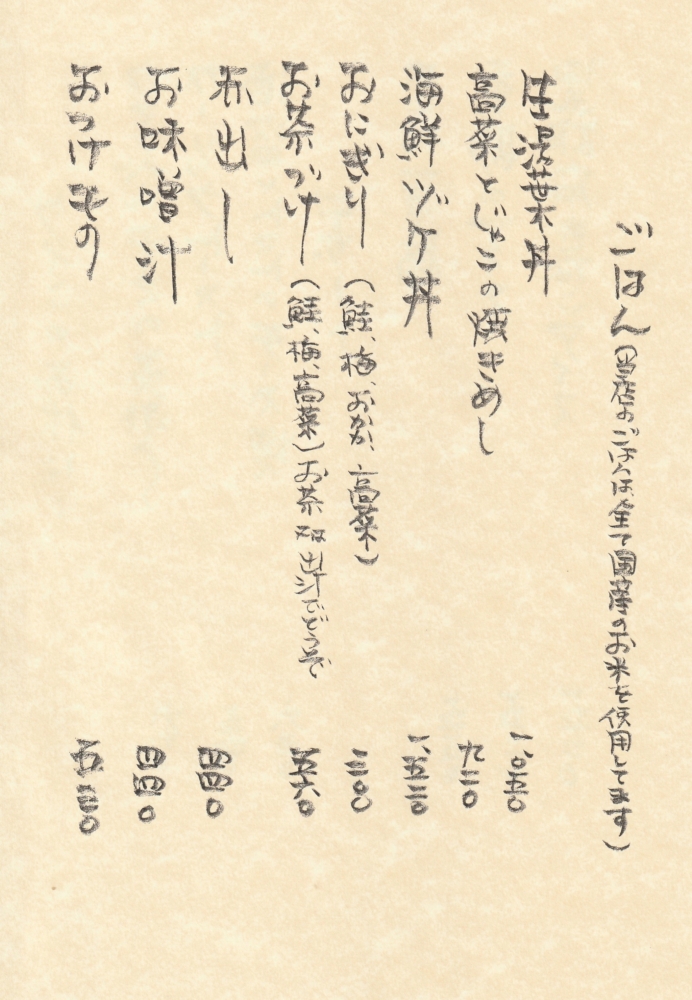 ごはん（当店のごはんは、全て国産のお米を使用してます）
生湯葉丼 一、〇五〇
高菜とじゃこの焼きめし 九二〇
海鮮ヅケ丼 一、五二〇
おにぎり（鮭、梅、おかか、高菜） 三〇〇
お茶づけ（鮭、梅、高菜）お茶又は出汁でどうぞ 五六〇
赤出し 四四〇
お味噌汁 四四〇
おつけもの 五三〇